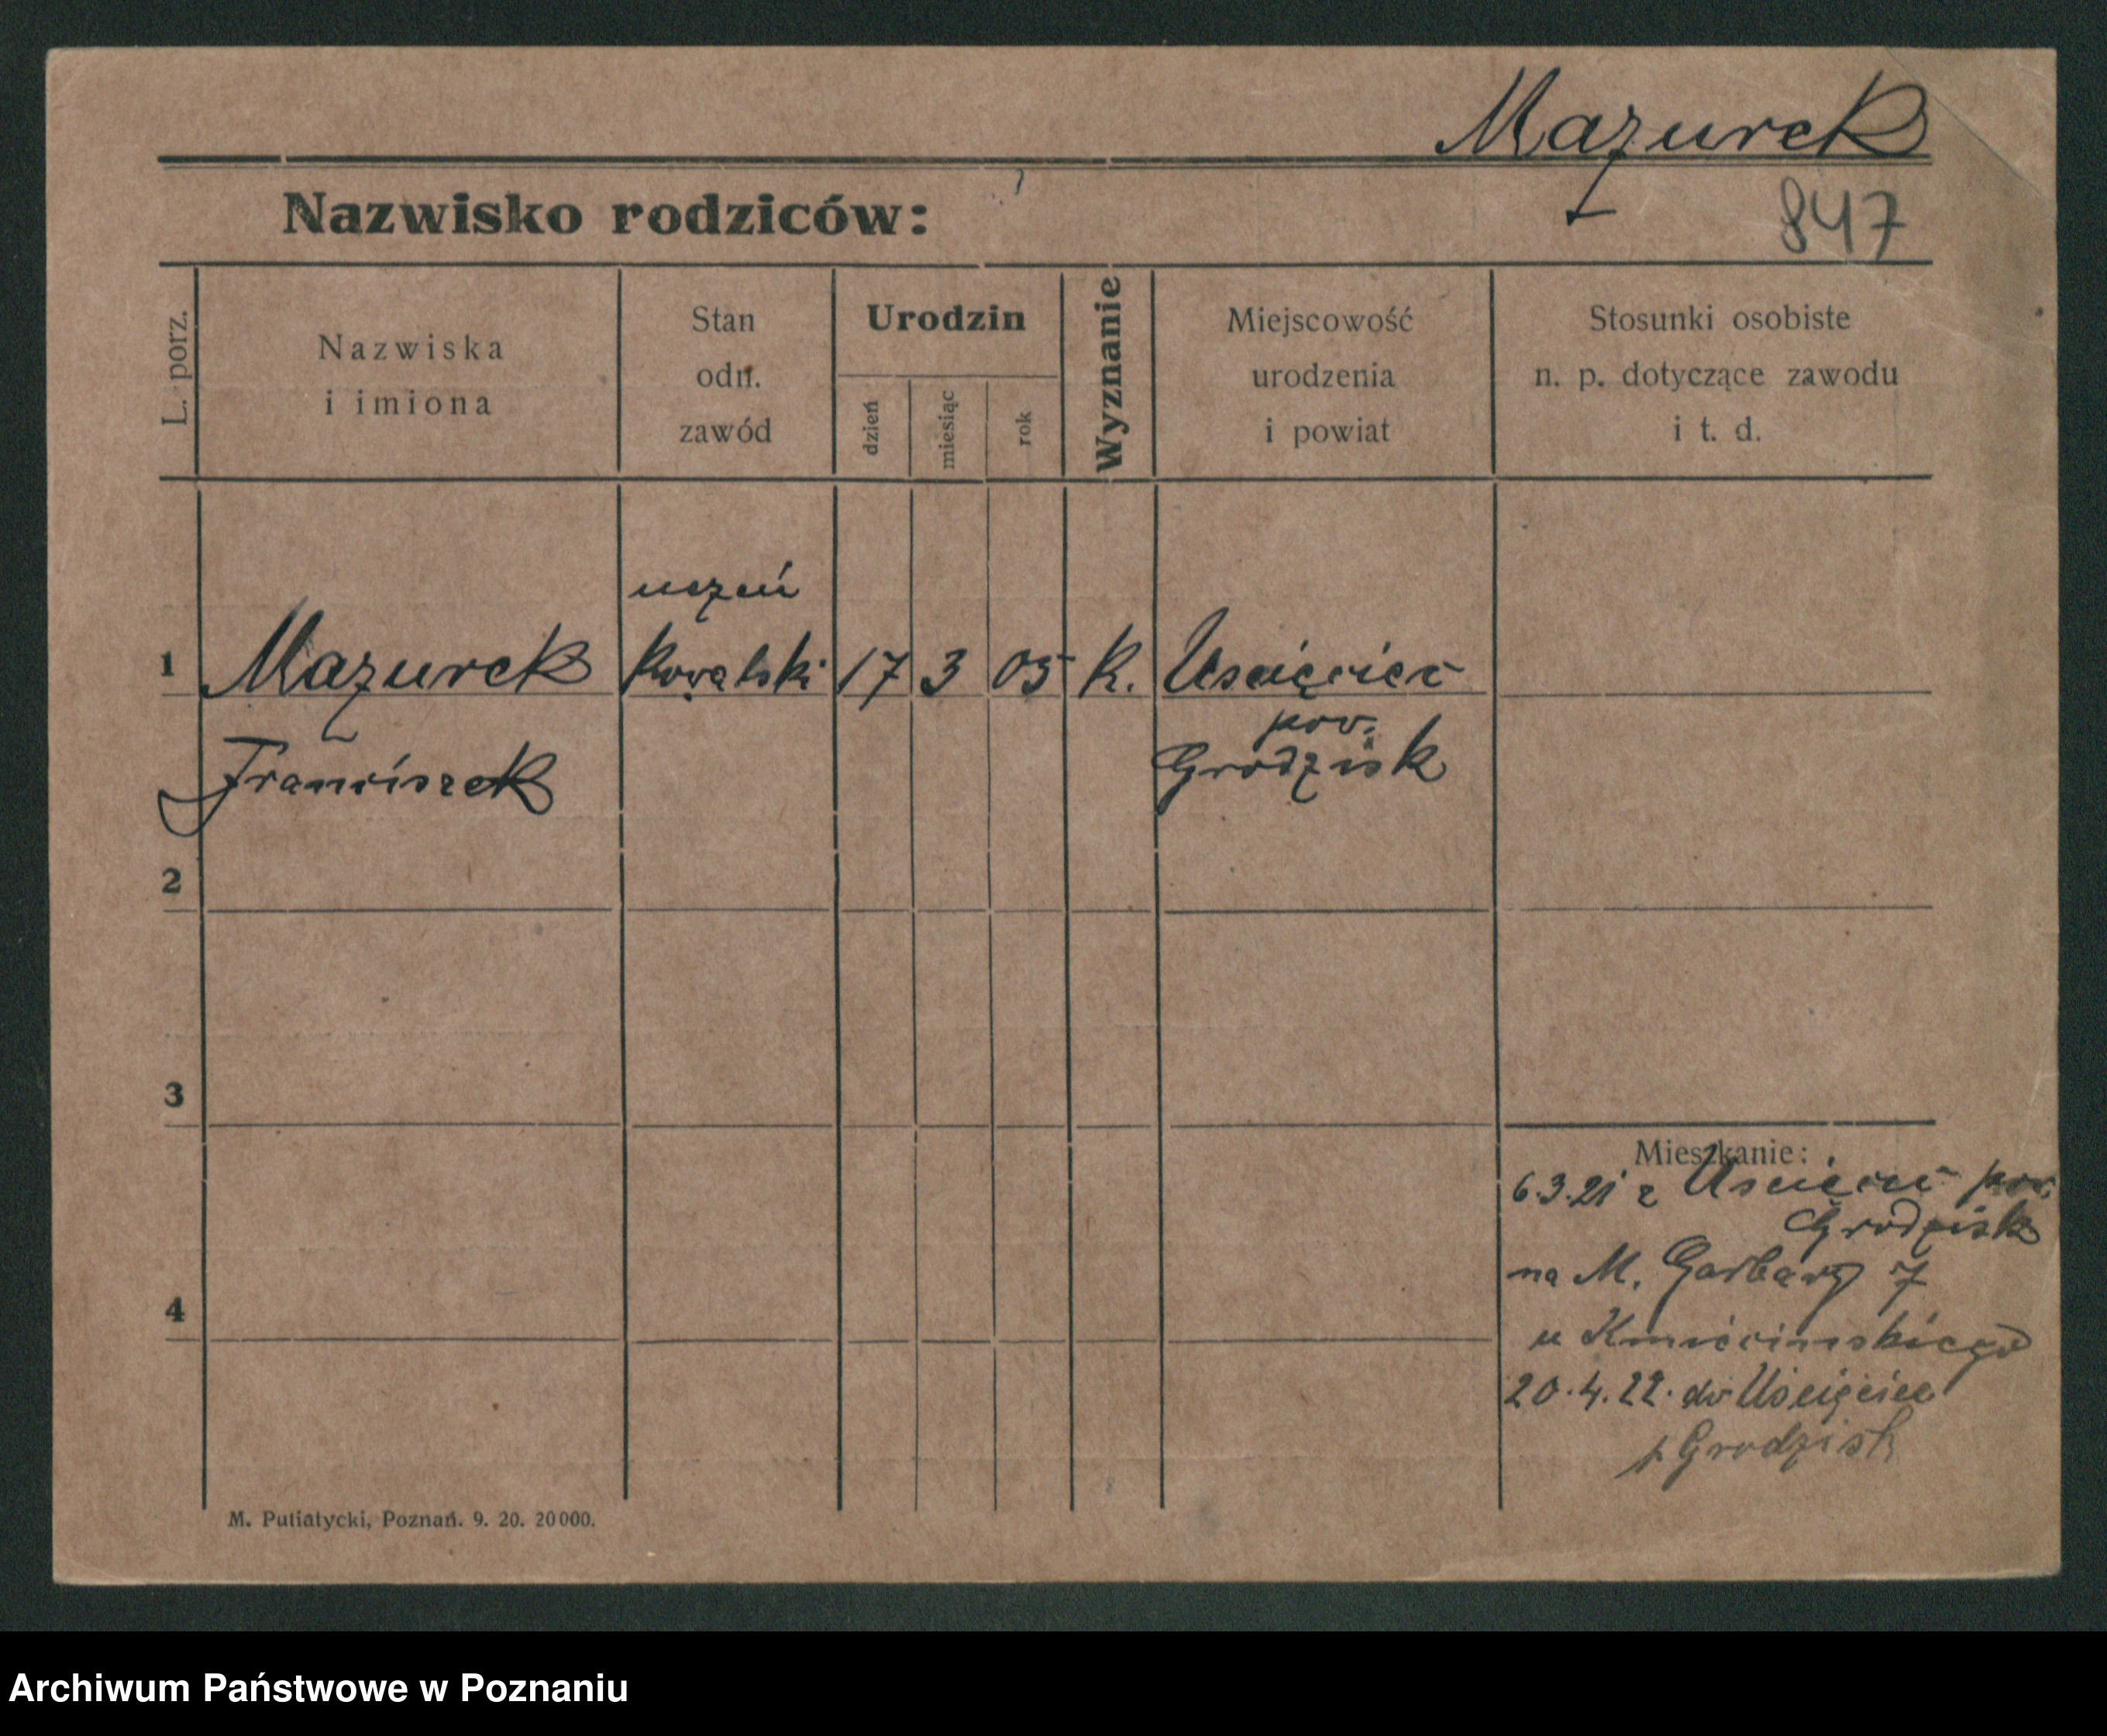 Mazurek
Nazwisko rodziców:
847
L. porz.
Nazwiska
i imiona
Stan
odn.
zawód
Urodzin
dzień
miesiąc
rok
Wyznanie
Miejscowość
urodzenia
i powiat
Stosunki osobiste
n. p. dotyczące zawodu
i t. d.
uczeń
1 Mazurek kowalski 17 3 05 k. Uscięciec
pow.
Franciszek Grodzisk
2
3
Mieszkanie:
6.3.21 z Uscięciec pow.
Grodzisk
na M. Garbary 7
4
u Kmiecinskiego
20.4.22. do Uścięciec
p Grodzisk
M. Putiatycki, Poznań. 9. 20. 20000.
Archiwum Państwowe w Poznaniu